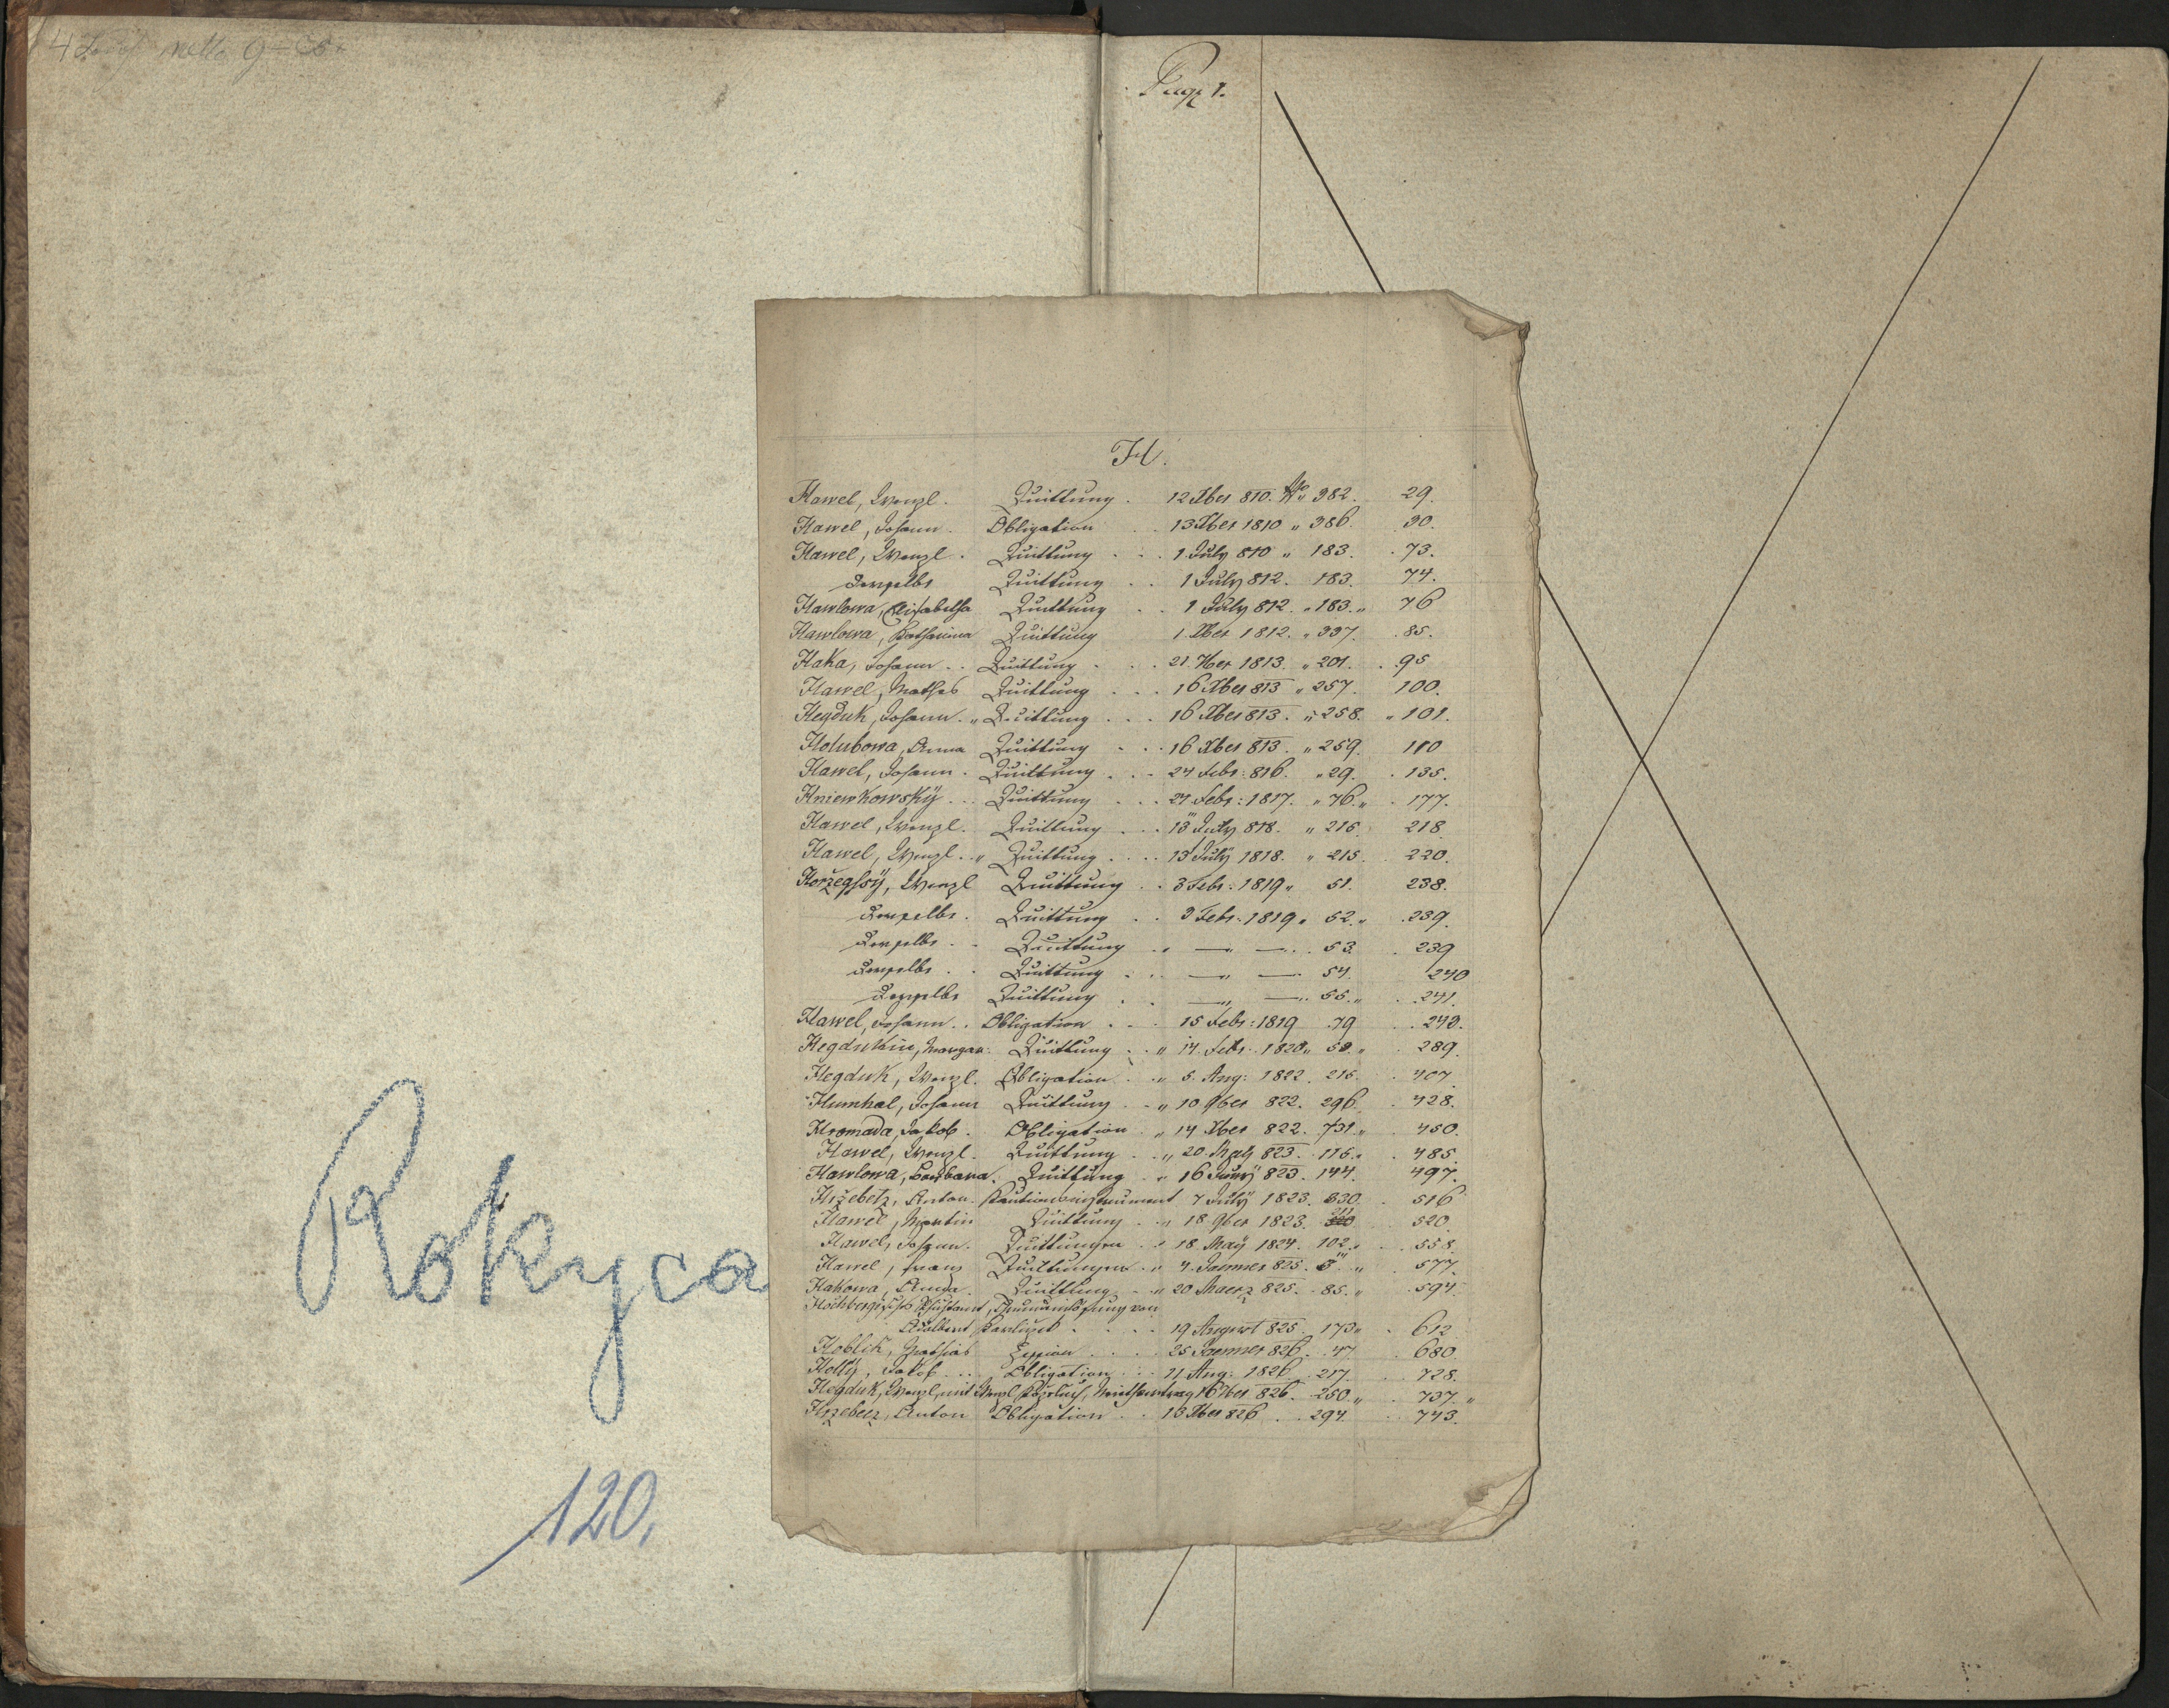 netto 9
Pag: 1.
H.
Hawel, Wenzl. Quittung. 12 Xber 810. No 382. 29.
Hawel, Johann. Obligation 13 Xber 1810 " 386. 30.
Hawel, Wenzl. Quittung 1 July 810 " 183. 73.
Derselbe Quittung 1 July 812. 183. 74.
Hawlowa, Elisabetha Quittung 1 July 812. " 183. " 76
Hawlowa, Katharina Quittung 1. Xber 1812. " 337. 85.
Haka, Johann Quittung 21. 7ber 1813. " 201. 95
Hawel, Mathes Quittung 16 Xber 813 " 257. 100.
Hegduk, Johann. " Quittung 16 Xber 813. " 258. " 101.
Holubowa, Anna Quittung 16 Xber 813. " 259. 110
Hawel, Johann. Quittung 24 Febr: 816. " 29. 135.
Hniewkowskÿ Quittung 27 Febr: 1817. " 76. " 177.
Hawel, Wenzl. Quittung 13 July 818. " 215. 218
Hawel, Wenzl. " Quittung 13 July 1818. " 215. 220.
Horzegssÿ, Wenzl Quittung 3 Febr: 1819 " 51. 238.
Derselbe. Quittung 3 Febr: 1819 " 52. " 239.
Derselbe Quittung " — " — 53. 239
Derselbe Quittung — " — 54. 240
Derselbe Quittung — " — 55. " 241.
Hawel, Johann. Obligation 15 Febr: 1819 79 243.
Hegdukin, Margar: Quittung " 14. Febr. 1820 " 58. " 289.
Hegduk, Wenzl. Obligation " 5. Aug: 1822. 215. 407
Humhal, Johann Quittung " 10 9ber 822. 296. 428.
Hromada, Jakob. Obligation " 14 Xber 822. 731. " 450.
Hawel, Wenzl. Quittung " 20. Maÿ 823. 115. 485.
Hawlowa, Barbara. Quittung " 16 Junÿ 823. 144. 497.
Hrzebetz, Anton. Kautionsinstrument 7 Julÿ 1823. 330. 516
Hawel, Martin Quittung " 18. 9ber 1823. 520.
Hawel, Johann. Quittungen " 18 Maÿ 1824. 102. " 558
Hawel, Franz Quittungen " 4. Jaenner 825. 5 " 577.
Hakowa, Anna. Quittung " 20 Maerz 825. 85. " 594.
von
Adalbert 19 August 825. 173 " 612
Hoblik, Mathias Zession 25 Jaenner 826. 47. 680
Hollÿ, Jakob Obligation 11 Aug: 1826. 217. 728.
Hegduk, Wenzl, mit Wenzl 16 7ber 826. 250. " 737. "
Hrzebecz, Anton Obligation 13 Xber 826. 294. 743.
Rokyca
120.